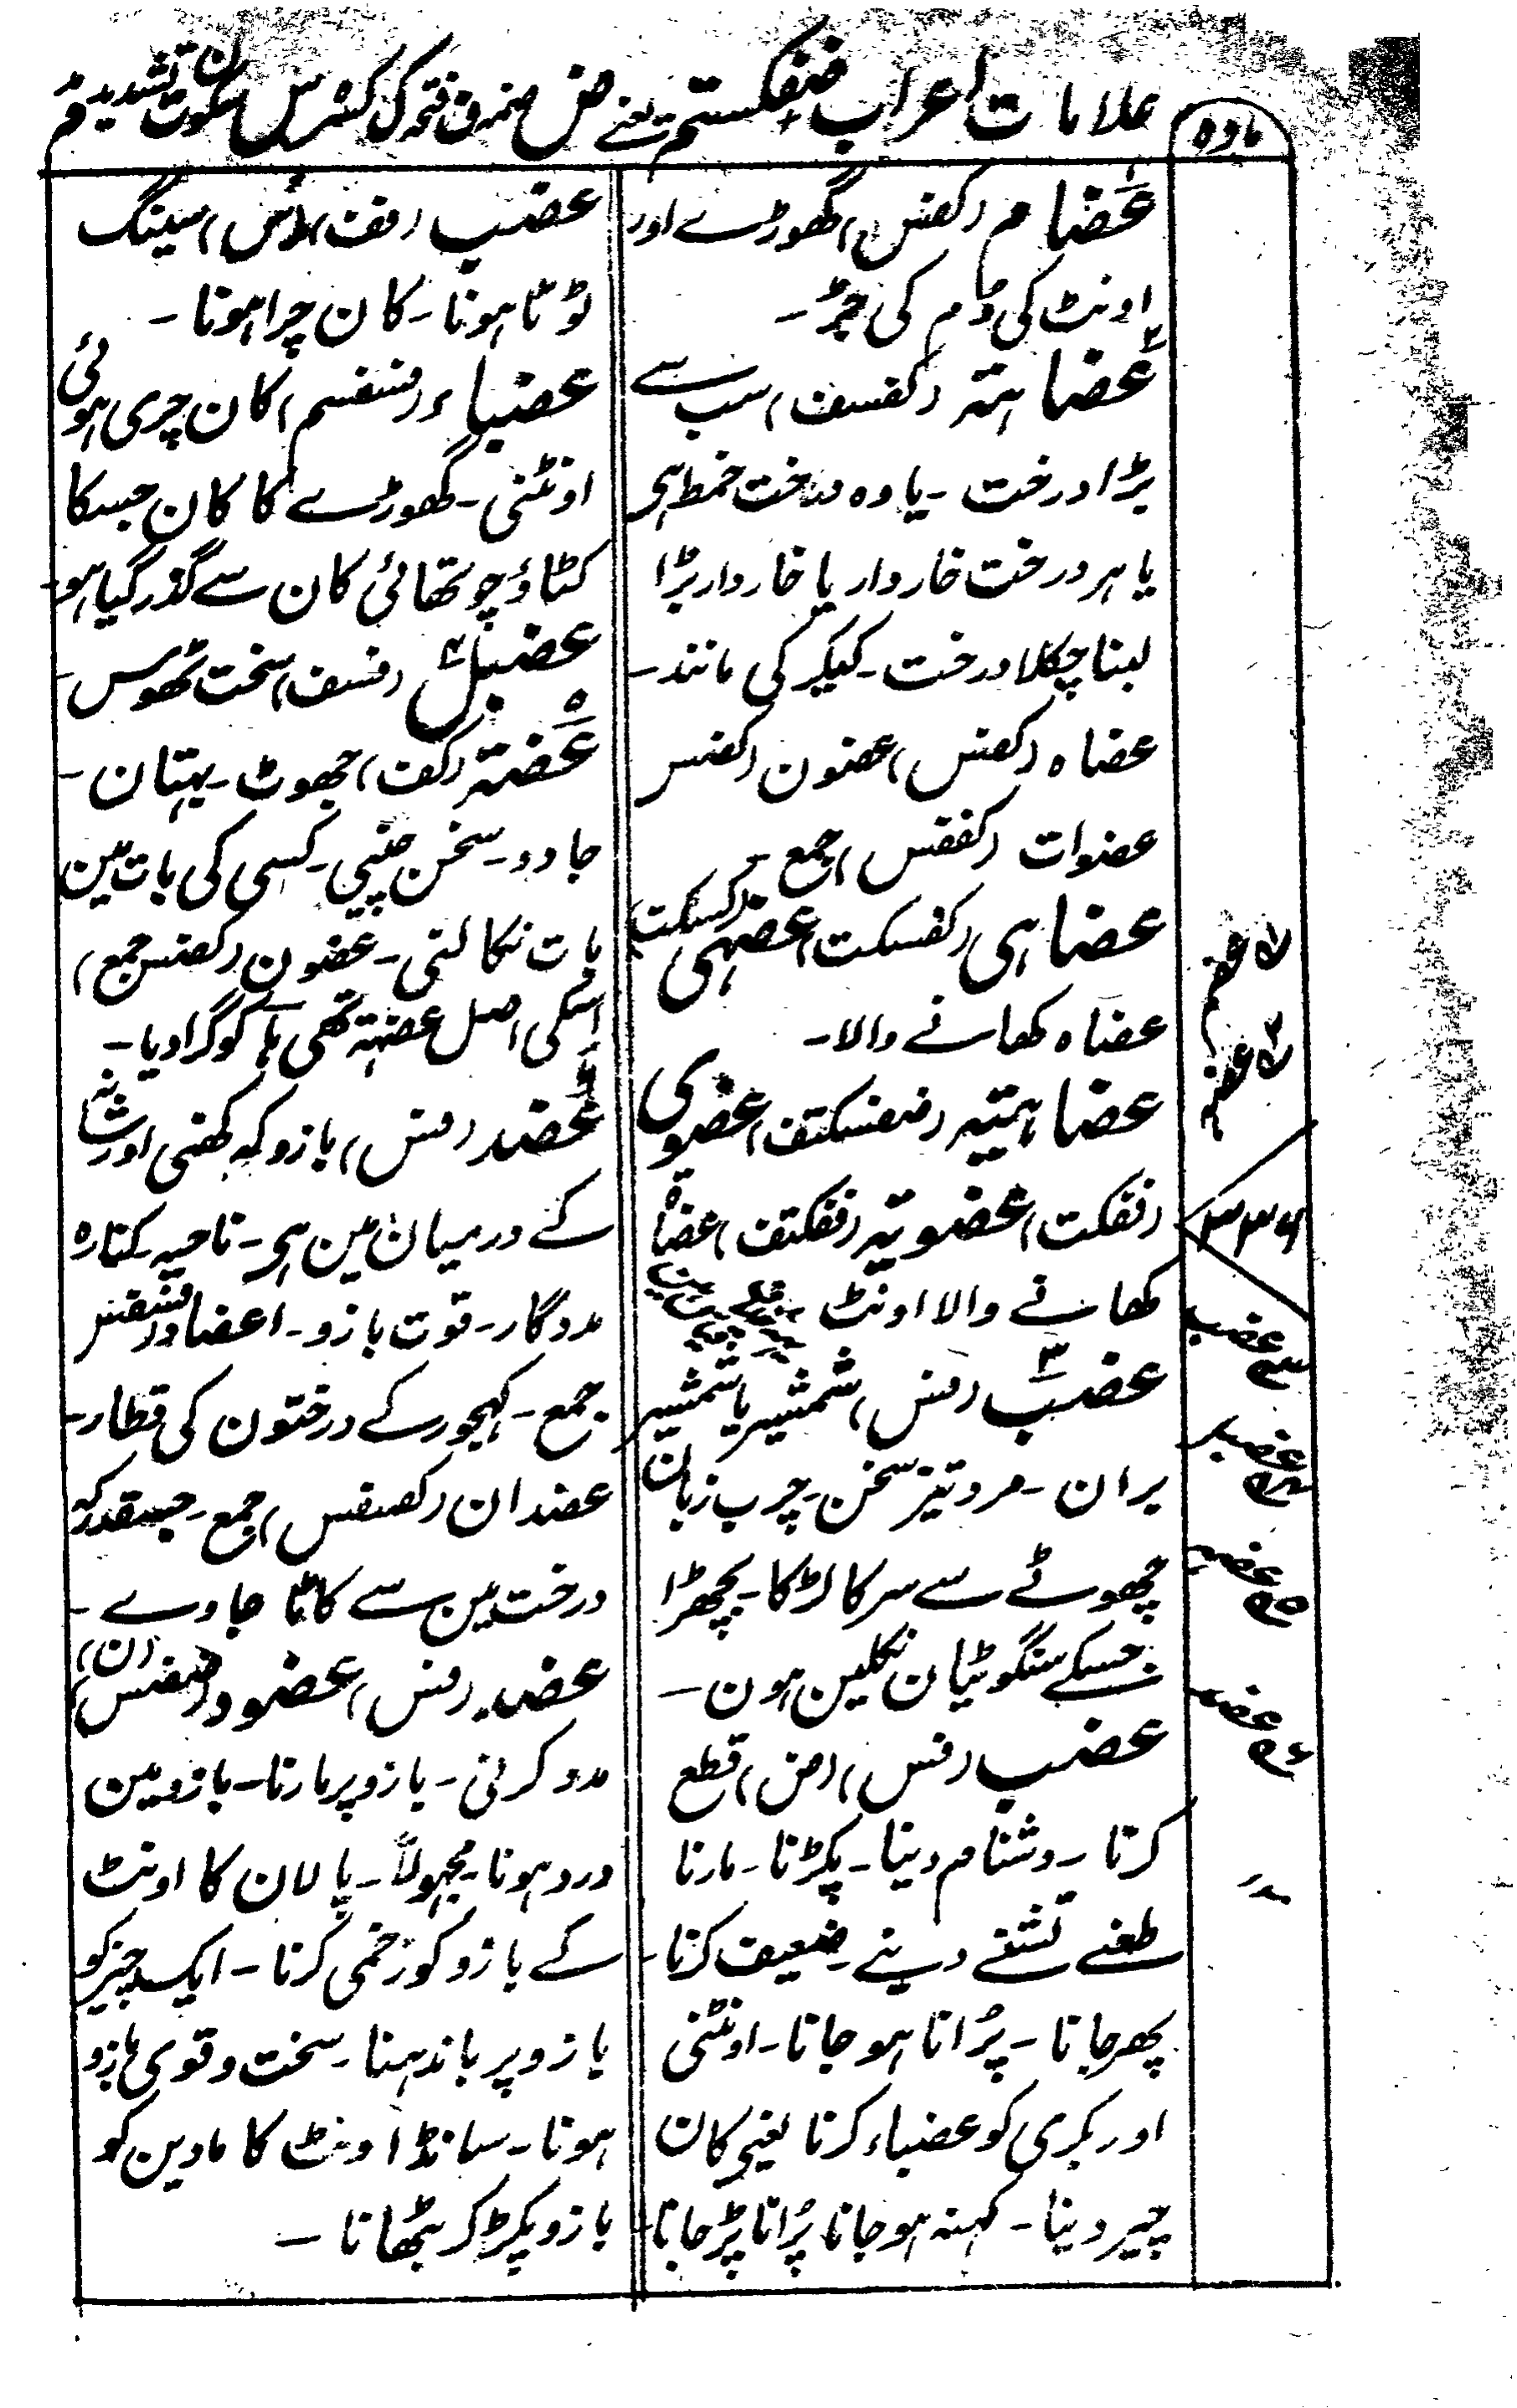 علامات اعراب ضفكستم یعنی ض ضمہ ف فتحہ ک کسرہ س سکون ت تشدید م مد
مادہ
عضام (کفس) گھوڑے اور
اونٹ کی دم کی جڑ۔
عضاہتہ (کفسف) سب سے
بڑا درخت۔ یا وہ درخت خمط ہی
یا ہر درخت خاردار یا خاردار بڑا
لبنا چکلا درخت۔ کیکر کی مانند۔
عضاہ (کفس) عضون (کضس
عضوات (کففس) جمع۔
عضاہی (کفسکت) عضہی (کسکت)
عضاہ کھانے والا۔
عضاہیتہ (ضفسکتف) عضوی
(ففکت) عضویتہ (ففکتف) عضاہ
کھانے والا اونٹ۔
عضب (فس) شمشیر یا شمشیر
بران۔ مرد تیز سخن۔ چرب زبان
چھوٹے سے سر کا لڑکا۔ بچھڑا
جسکے سنگوٹیان نکلین ہون۔
عضب (فس) (ض) قطع
کرنا۔ دشنام دینا۔ پکڑنا۔ مارنا
طعنے تشنے دینے۔ ضعیف کرنا۔
پھر جانا۔ پُرانا ہو جانا۔ اونٹنی
اور بکری کو عضباء کرنا یعنی کان
چیر دینا۔ کہنہ ہو جانا پُرانا پڑ جانا
عضب (فف) (س) سینگ
ٹوٹا ہونا۔ کان چرا ہونا۔
عضباء (فسفسم) کان چری ہوئی
اونٹنی۔ گھوڑے کا کان جسکا
کٹاؤ چوتھائی کان سے گذر گیا ہو۔
عضبل (فسف) سخت ٹھوس۔
عضتہ (کف) جھوٹ۔ بہتان۔
جادو۔ سخن چینی۔ کسی کی بات مین
بات نکالنی۔ عضون (کضس جمع)
اسکی اصل عضہتہ تھی ہا کو گرا دیا۔
عضد (فس) بازو کہ کھنی اور شانہ
کے درمیان مین ہی۔ ناحیہ۔ کنارہ
مددگار۔ قوت بازو۔ اعضاد (فسفس
جمع۔ کہجور کے درختون کی قطار۔
عضدان (کسفس) جمع۔ جسقدر کہ
درخت مین سے کاٹا جاوے۔
عضد (فس) عضود (ضضس) (ن)
مدد کرنی۔ بازو پر مارنا۔ بازو مین
درد ہونا۔ مجہولاً۔ پالان کا اونٹ
کے بازو کو زخمی کرنا۔ ایک چیز کو
بازو پر باندہنا۔ سخت و قوی بازو
ہونا۔ سانڈ اونٹ کا مادین کو
بازو پکڑ کر بٹھانا۔
عضم
عضہ
۳۳۶
عضب
عضد